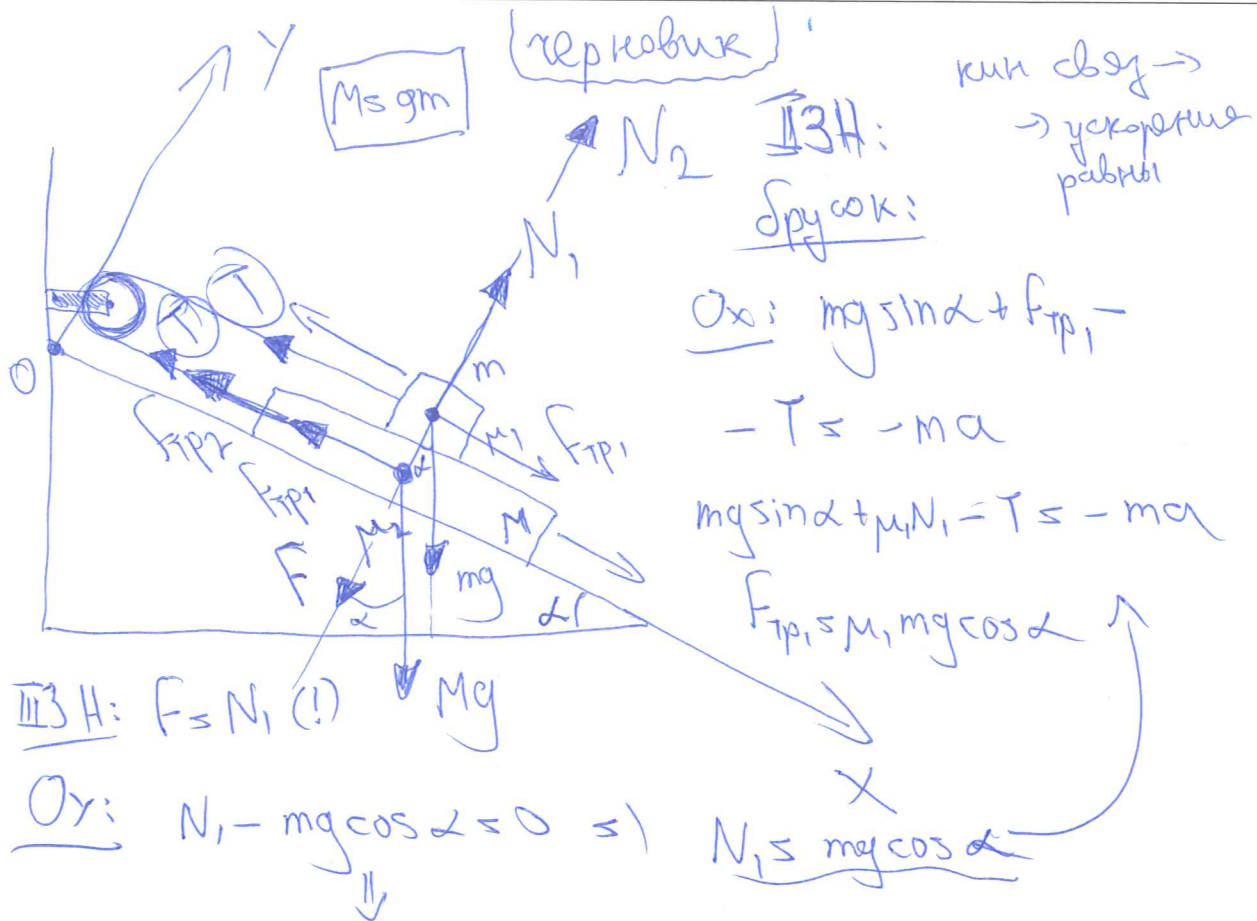 черновик
Y
M = 9m
кин связ →
→ ускорения
равны
N₂
II З Н:
брусок:
N₁
T
T
Ox: mg sinα + Fтр₁ -
- T = - ma
mg sinα + μ₁N₁ - T = - ma
Fтр₁ = μ₁ mg cosα
O
m
μ₁
Fтр₁
Fтр₂
Fтр₁
α
μ₂
M
F
α
mg
α
Mg
X
III З Н: F = N₁ (!)
Oy: N₁ - mg cosα = 0 =) N₁ = mg cosα
⇓